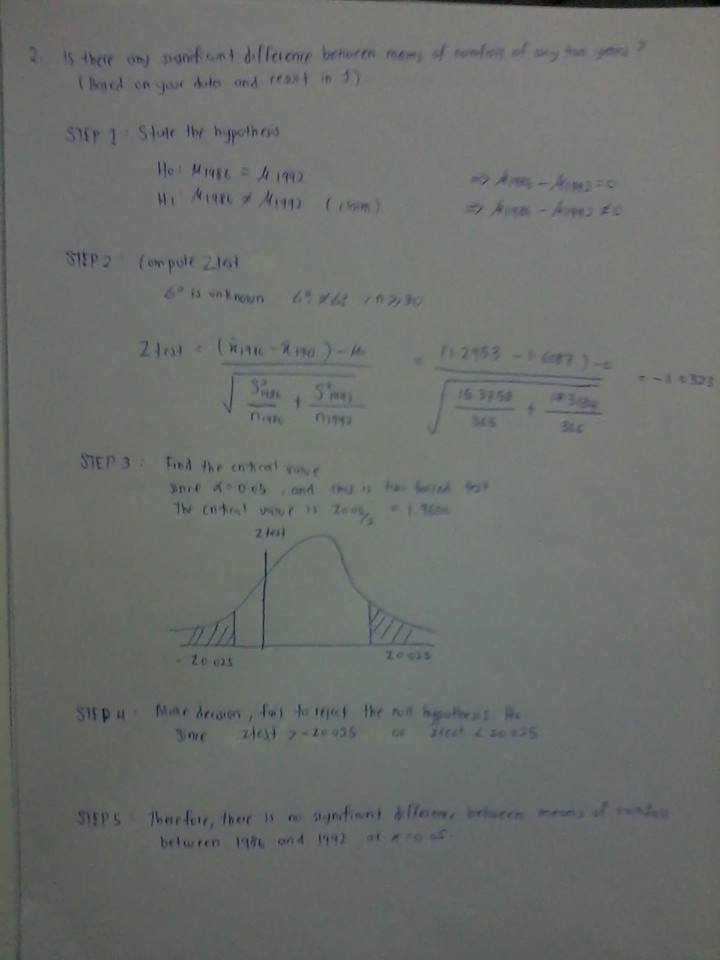 2. Is there any significant difference between means of rainfalls of any two years?
(Based on your dates and result in 1)
STEP 1: State the hypothesis
H0: μ1986 = μ1992 ⇒ μ1986 − μ1992 = 0
H1: μ1986 ≠ μ1992 (claim) ⇒ μ1986 − μ1992 ≠ 0
STEP 2: Compute Z test
is unknown
Z test = (x̄1986 − x̄1992) − μ0 / √(S²1986/n1986 + S²1992/n1992) = (1.2953 − 1.6087) − 0 / √(15.3758/365 + /366)
STEP 3: Find the critical value
Since α = 0.05, and this is two tailed test
The critical value is Z0.05/2 = 1.9600
Z test
- Z0.025 Z0.025
STEP 4: Make decision, fail to reject the null hypothesis H0
Since Ztest > -Z0.025 or Ztest < Z0.025
STEP 5: Therefore, there is no significant difference between means of rainfalls
between 1986 and 1992 at α = 0.05.